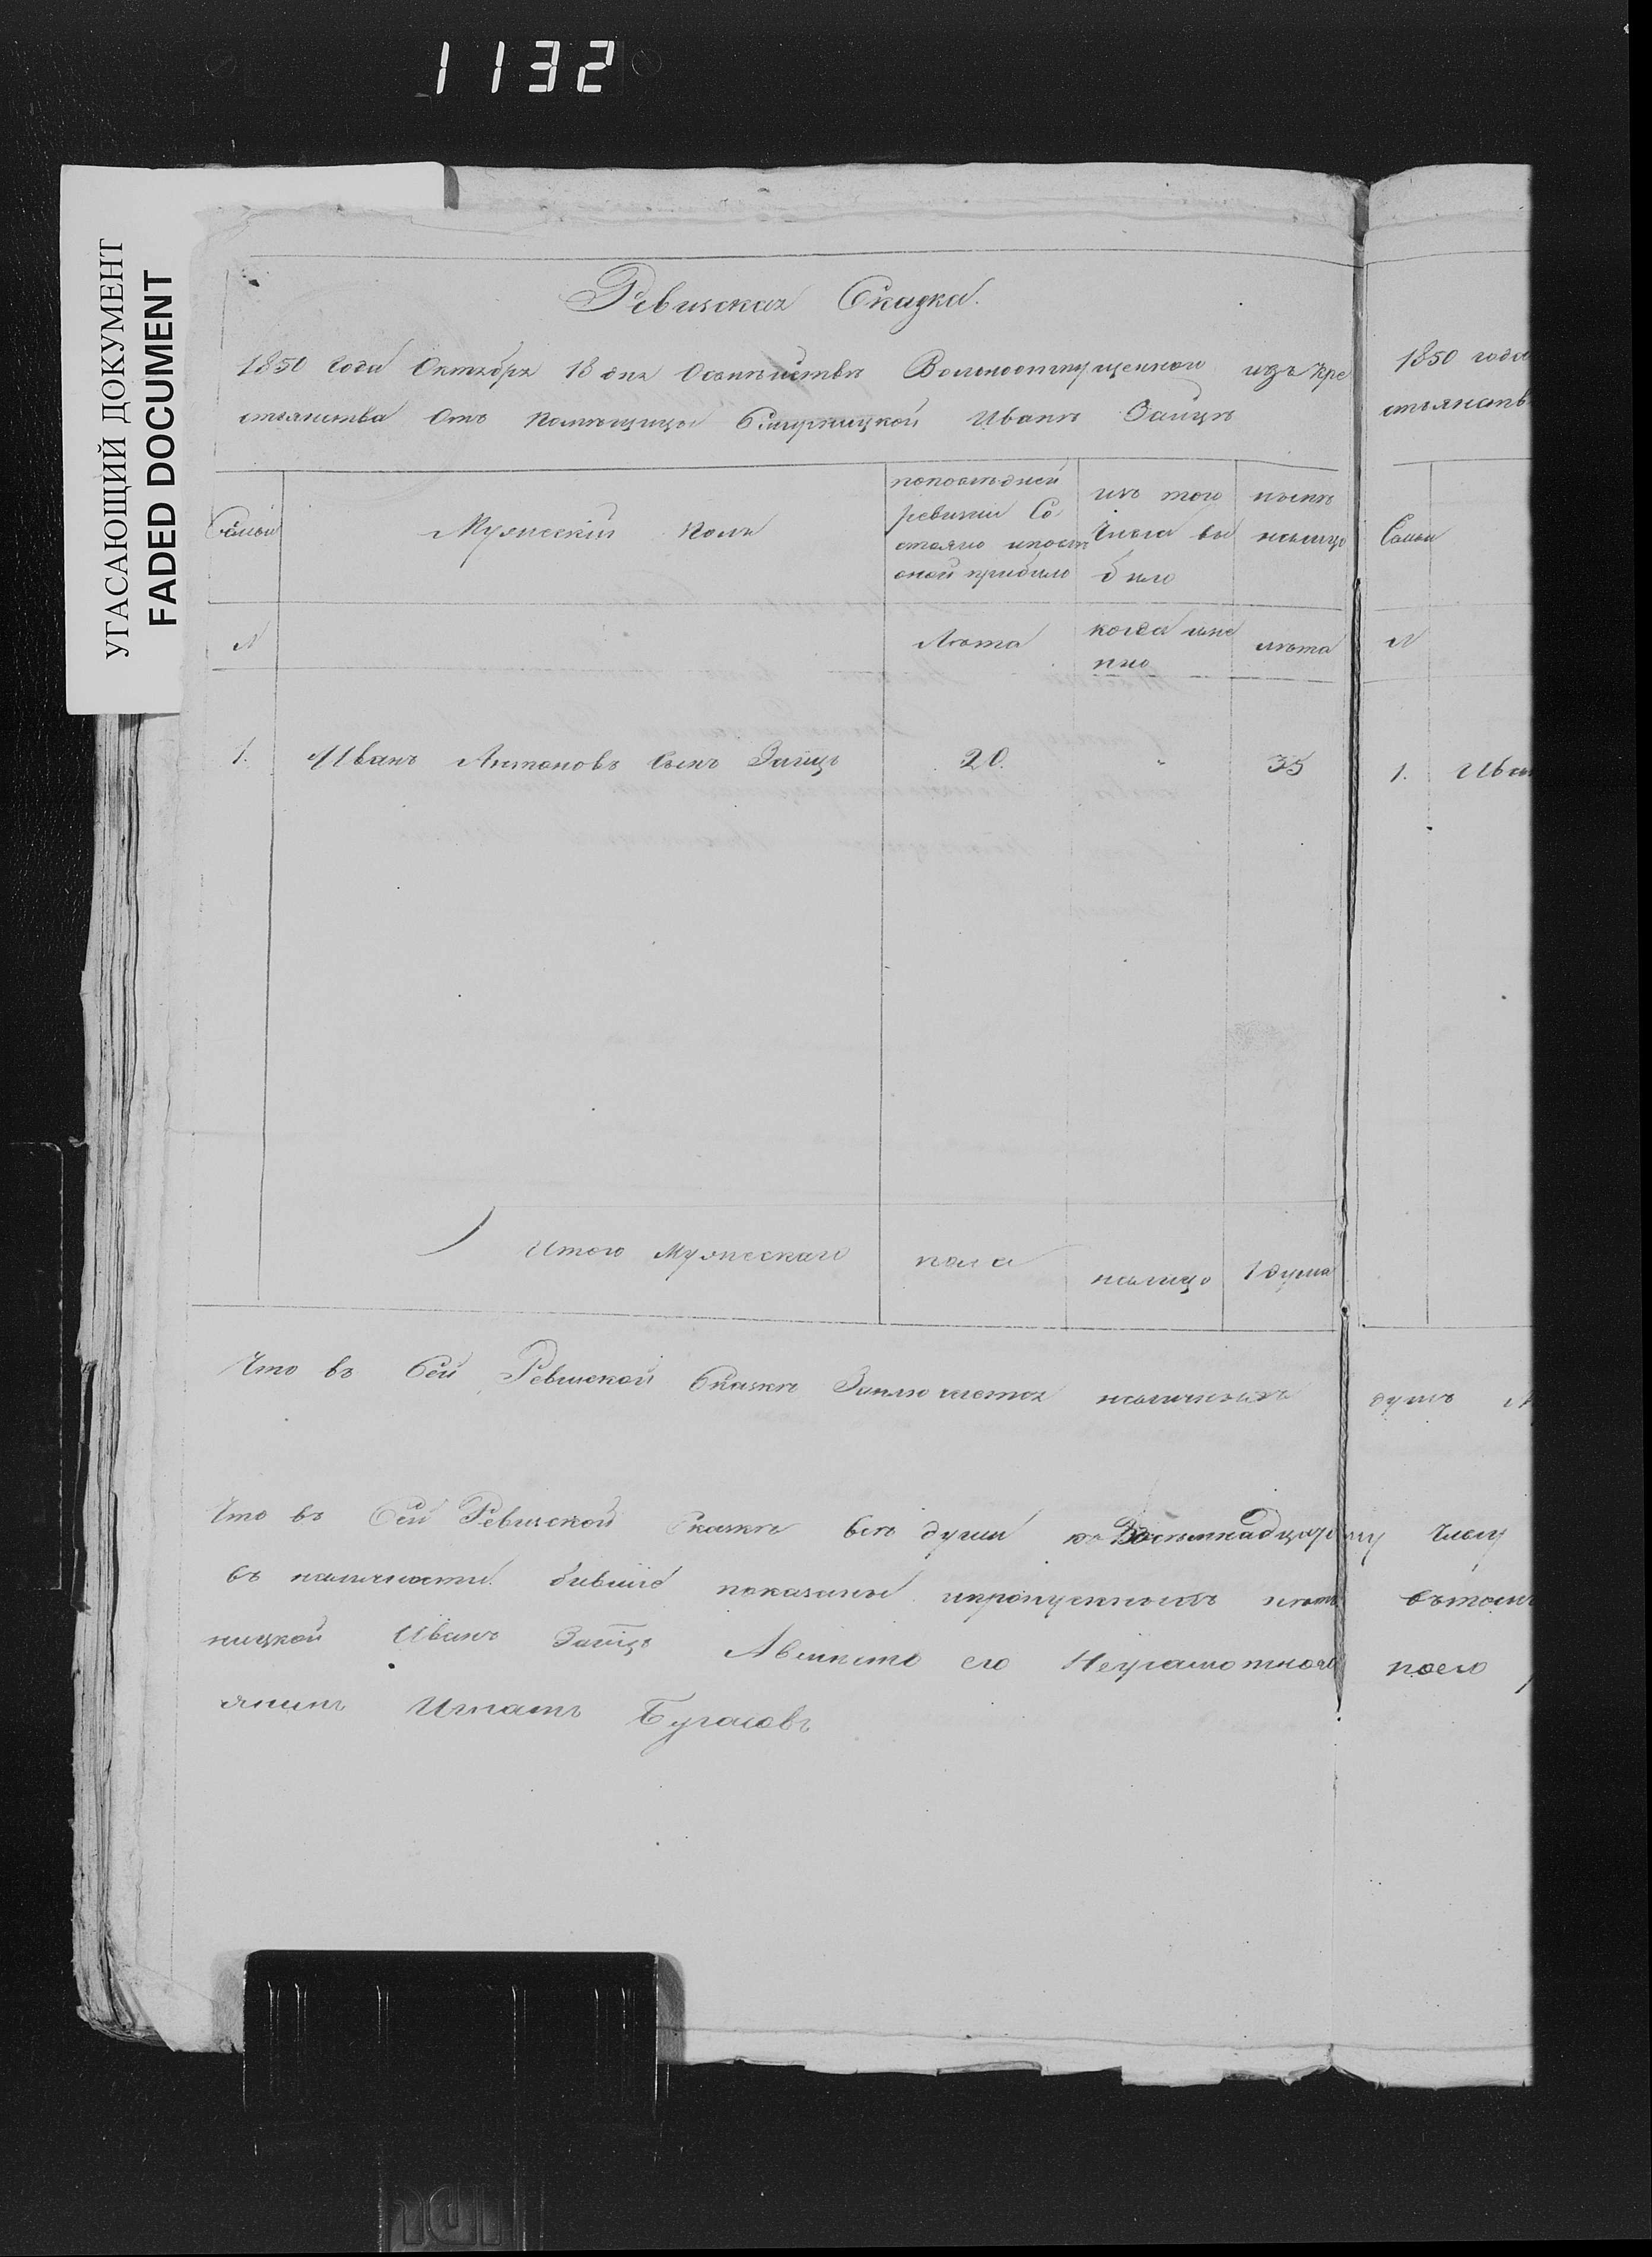 1132
УГАСАЮЩИЙ ДОКУМЕНТ
FADED DOCUMENT
Ревизская Сказка.
1850 года Октября 18 дня Осемействѣ Вольноотпущенного изъ кре
стьянства Отъ помѣщицы Иванѣ Заицѣ
Семьи
Мужескій полъ
попослѣдней ревизіи Со стояло ипослѣ оной прибыло
изъ того Числа вы было
нынѣ налицо
№
Лѣта
когда имен но
лѣта
1. Иванъ Антоновъ Сынъ Заицъ 20. " 35
Итого Мужескаго пола налицо 1 душа
Что въ Сей Ревизской Сказкѣ Заключается наличныхъ душъ
Что въ Сей Ревизской Сказкѣ всѣ души къ Восемнадцатому Числу
въ наличности бывшіе показаны ипропущенныхъ нѣтъ вътомъ
ницкой Иванъ Заіцъ Авмѣсто его Неграмотного поего
янинъ Игнатъ Бугасовъ
1850 года
стьянств
Семьи
№
1. Иван